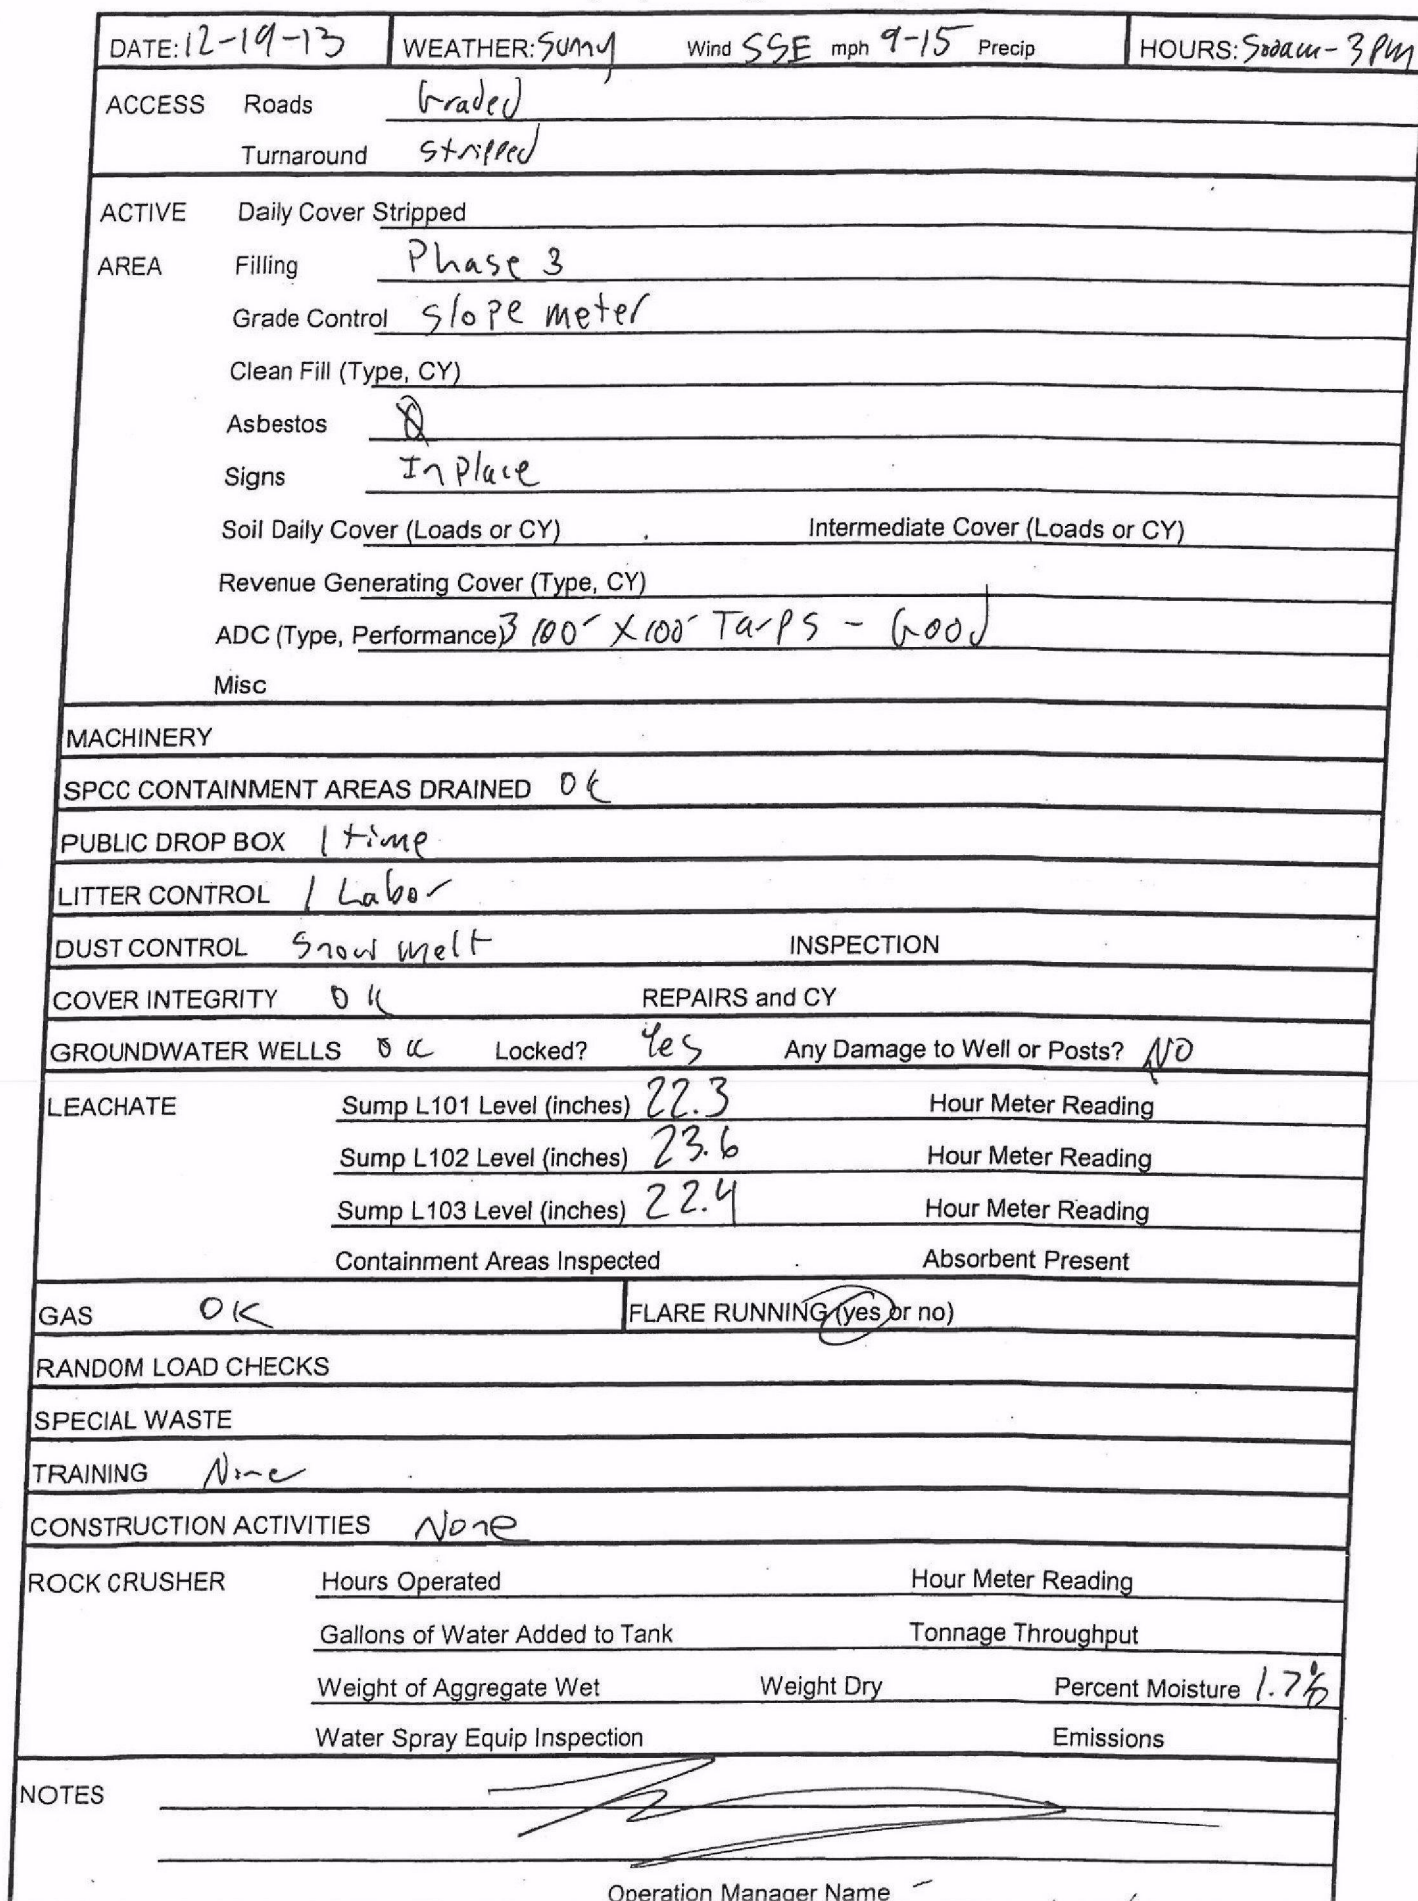 DATE: 12-19-13 WEATHER: Sunny Wind SSE mph 9-15 Precip HOURS: 500am - 3PM
ACCESS Roads Graded
Turnaround stripped
ACTIVE Daily Cover Stripped
AREA Filling Phase 3
Grade Control slope meter
Clean Fill (Type, CY)
Asbestos
Signs In Place
Soil Daily Cover (Loads or CY) Intermediate Cover (Loads or CY)
Revenue Generating Cover (Type, CY)
ADC (Type, Performance) 3 100' X 100' Tarps - Good
Misc
MACHINERY
SPCC CONTAINMENT AREAS DRAINED OK
PUBLIC DROP BOX 1 time
LITTER CONTROL 1 Labor
DUST CONTROL Snow melt INSPECTION
COVER INTEGRITY OK REPAIRS and CY
GROUNDWATER WELLS OK Locked? Yes Any Damage to Well or Posts? NO
LEACHATE Sump L101 Level (inches) 22.3 Hour Meter Reading
Sump L102 Level (inches) 23.6 Hour Meter Reading
Sump L103 Level (inches) 22.4 Hour Meter Reading
Containment Areas Inspected Absorbent Present
GAS OK FLARE RUNNING (yes or no)
RANDOM LOAD CHECKS
SPECIAL WASTE
TRAINING None
CONSTRUCTION ACTIVITIES None
ROCK CRUSHER Hours Operated Hour Meter Reading
Gallons of Water Added to Tank Tonnage Throughput
Weight of Aggregate Wet Weight Dry Percent Moisture 1.7%
Water Spray Equip Inspection Emissions
NOTES
Operation Manager Name